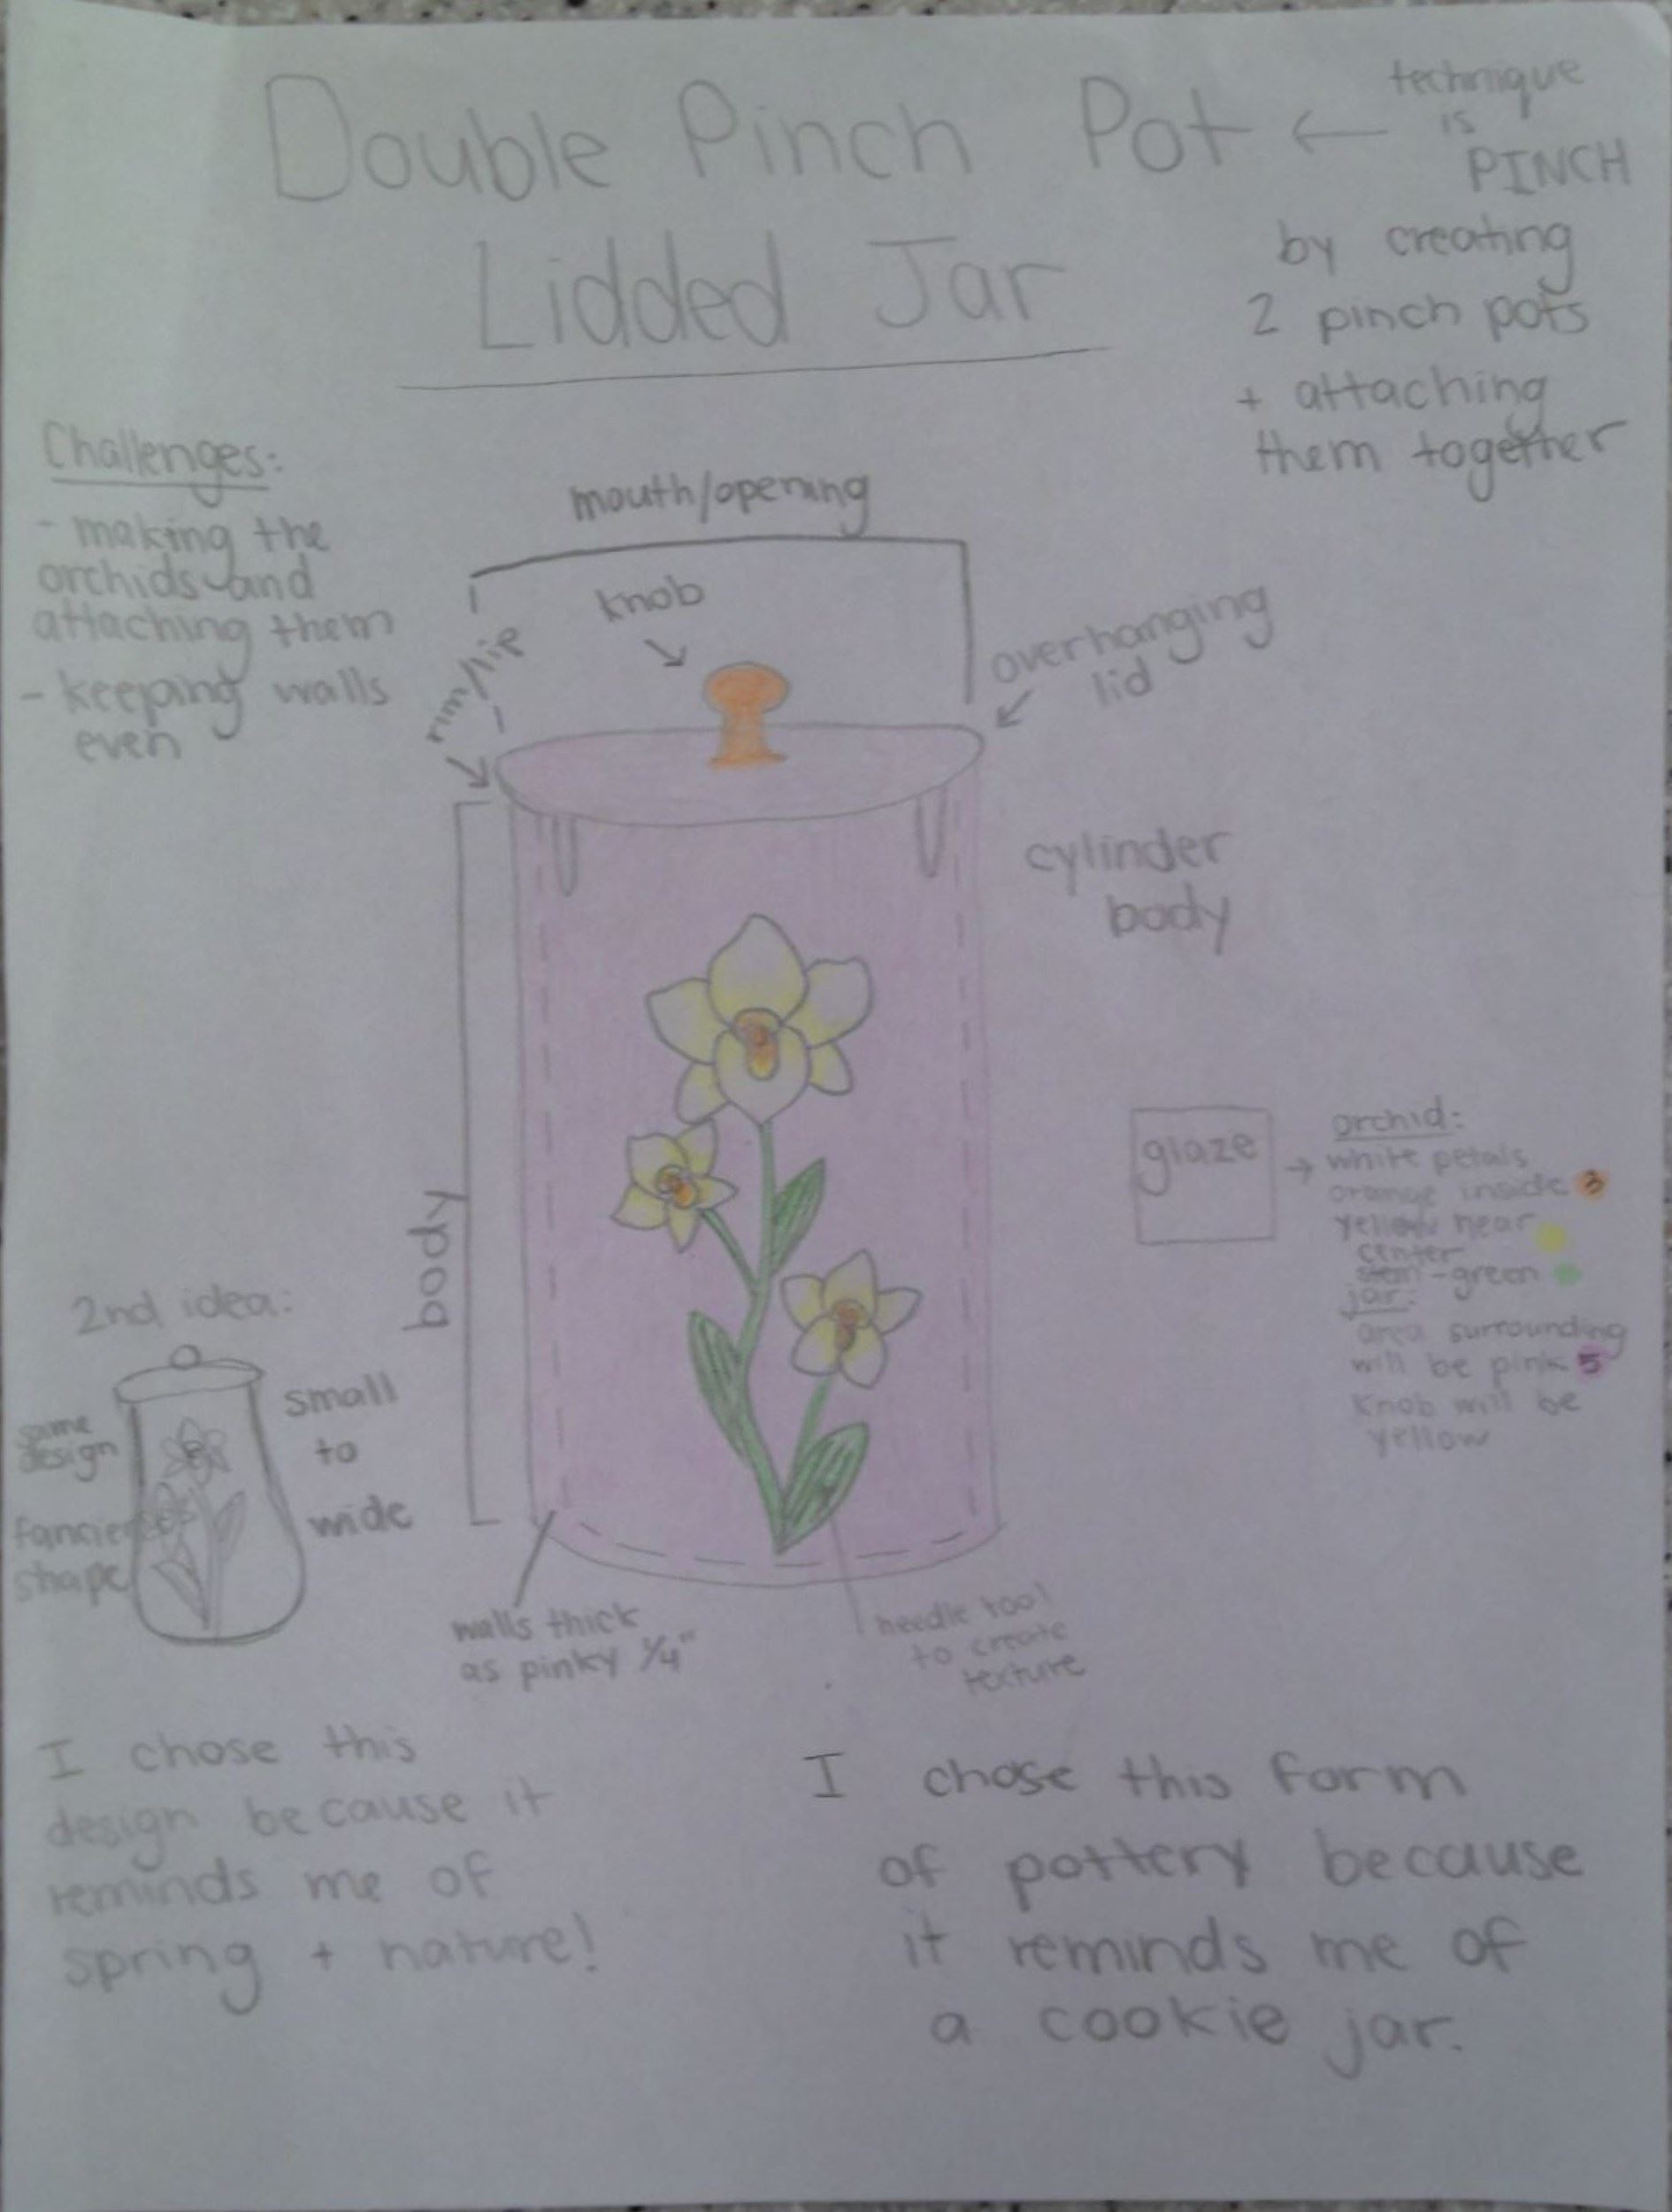 Double Pinch Pot
Lidded Jar
← technique
is
PINCH
by creating
2 pinch pots
+ attaching
them together
Challenges:
- making the
orchids and
attaching them
- keeping walls
even
mouth/opening
knob
rim/lip
overhanging
lid
cylinder
body
body
glaze →
orchid:
white petals
orange inside 3
yellow near
center
stem-green
jar:
area surrounding
will be pink 5
knob will be
yellow
2nd idea:
same
design
fancier
shape
small
to
wide
walls thick
as pinky 1/4"
needle tool
to create
texture
I chose this
design because it
reminds me of
spring + nature!
I chose this form
of pottery because
it reminds me of
a cookie jar.